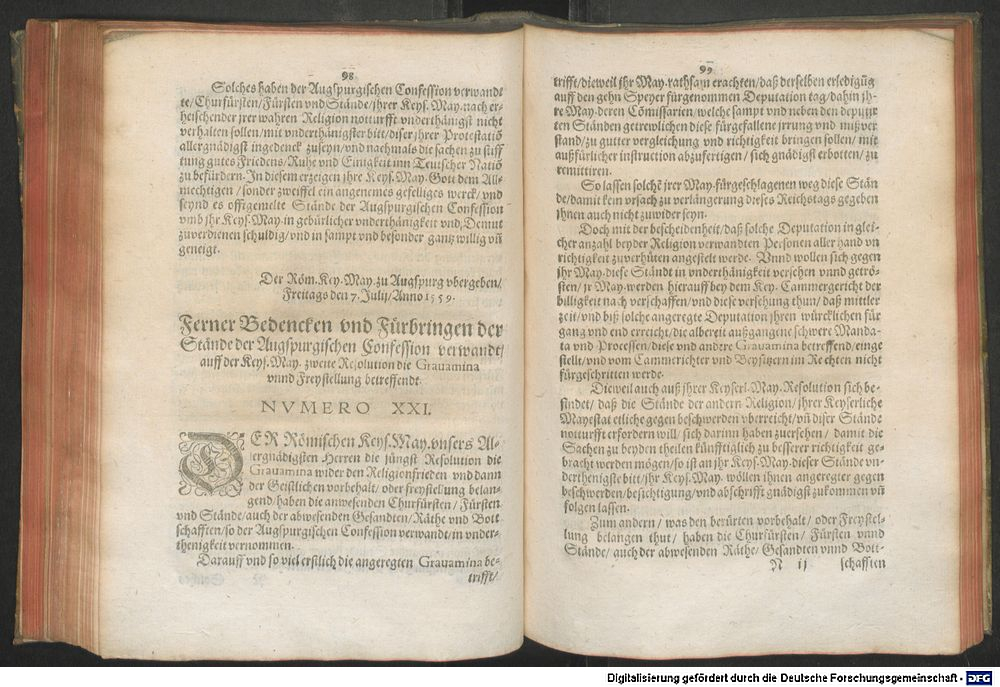 98
Solches haben der Augspurgischen Confession verwand
te/Churfürsten/Fürsten vnd Stände/jhrer Keys. May. nach er-
heischender jrer wahren Religion notturfft vnderthänigst nicht
verhalten sollen/mit vnderthänigster bitt/diser jhrer Protestatiõ
allergnädigst ingedenck zuseyn/vnd nachmals die sachen zu stiff
tung gutes Friedens/Ruhe vnd Einigkeit inn Teutscher Natiõ
zu befürdern. In diesem erzeigen jhre Keys. May. Gott dem All-
mechtigen/sonder zweiffel ein angenemes gefelliges werck/vnd
seynd es offtgemelte Stände der Augspurgischen Confession
vmb jhr Keys. May. in gebürlicher vnderthänigkeit vnd Demut
zuverdienen schuldig/vnd in sampt vnd besonder gantz willig vñ
geneigt.
Der Röm. Key. May. zu Augspurg vbergeben/
Freitags den 7. Julij/Anno 1559.
Ferner Bedencken vnd Fürbringen der
Stände der Augspurgischen Confession verwandt/
auff der Keys. May. zweite Resolution die Grauamina
vnnd Freystellung betreffendt.
NVMERO XXI.
DER Römischen Keys. May. vnsers All-
ergnädigsten Herren die jüngst Resolution die
Grauamina wider den Religionfrieden vnd dann
der Geistlichen vorbehalt/oder freystellung belan-
gend/haben die anwesenden Churfürsten/Fürsten
vnd Stände/auch der abwesenden Gesandten/Räthe vnd Bott
schafften/so der Augspurgischen Confession verwandt/in vnder-
thenigkeit vernommen.
Darauff vnd so viel erstlich die angeregten Grauamina be-
trifft/
99
trifft/dieweil jhr May. rathsam erachten/daß derselben erledigũg
auff den gehn Speyer fürgenommen Deputation tag/dahin jh-
re May. deren Cõmissarien/welche sampt vnd neben den deputir
ten Ständen getrewlichen diese fürgefallene jrrung vnd mißver
stand/zu gutter vergleichung vnd richtigkeit bringen sollen/mit
außfürlicher instruction abzufertigen/sich gnädigst erbotten/zu
remittiren.
So lassen solchē jrer May. fürgeschlagenen weg diese Stän
de/damit kein vrsach zu verlängerung dieses Reichstags gegeben
jhnen auch nicht zuwider seyn.
Doch mit der bescheidenheit/daß solche Deputation in glei-
cher anzahl beyder Religion verwandten Personen aller hand vn
richtigkeit zuverhüten angestelt werde. Vnnd wollen sich gegen
jhr May. diese Ständt in vnderthänigkeit versehen vnnd getrö-
sten/jr May. werden hierauff bey dem Key. Cammergericht der
billigkeit nach verschaffen/vnd diese versehung thun/daß mittler
zeit/vnd biß solche angeregte Deputation jhren würcklichen für
gang vnd end erreicht/die albereit außgangene schwere Manda-
ta vnd Processen/diese vnd andere Grauamina betreffend/einge
stellt/vnd vom Cammerichter vnd Beysitzern im Rechten nicht
fürgeschritten werde.
Die weil auch auß jhrer Keyserl. May. Resolution sich be-
findet/daß die Stände der andern Religion/jhrer Keyserliche
Mayestat etliche gegen beschwerden vberreicht/vñ diser Stände
notturfft erfordern will/sich darinn haben zuersehen/damit die
Sachen zu beyden theilen künfftiglich zu besserer richtigkeit ge-
bracht werden mögen/so ist an jhr Keys. May. dieser Stände vn-
derthenigste bitt/jhr Keys. May. wöllen jhnen angeregter gegen
beschwerden/besichtigung/vnd abschrifft gnädigst zukommen vñ
folgen lassen.
Zum andern/was den berürten vorbehalt/oder Freystel-
lung belangen thut/haben die Churfürsten/Fürsten vnnd
Stände/auch der abwesenden Räthe/Gesandten vnnd Bott-
N ij schafften
Digitalisierung gefördert durch die Deutsche Forschungsgemeinschaft - DFG